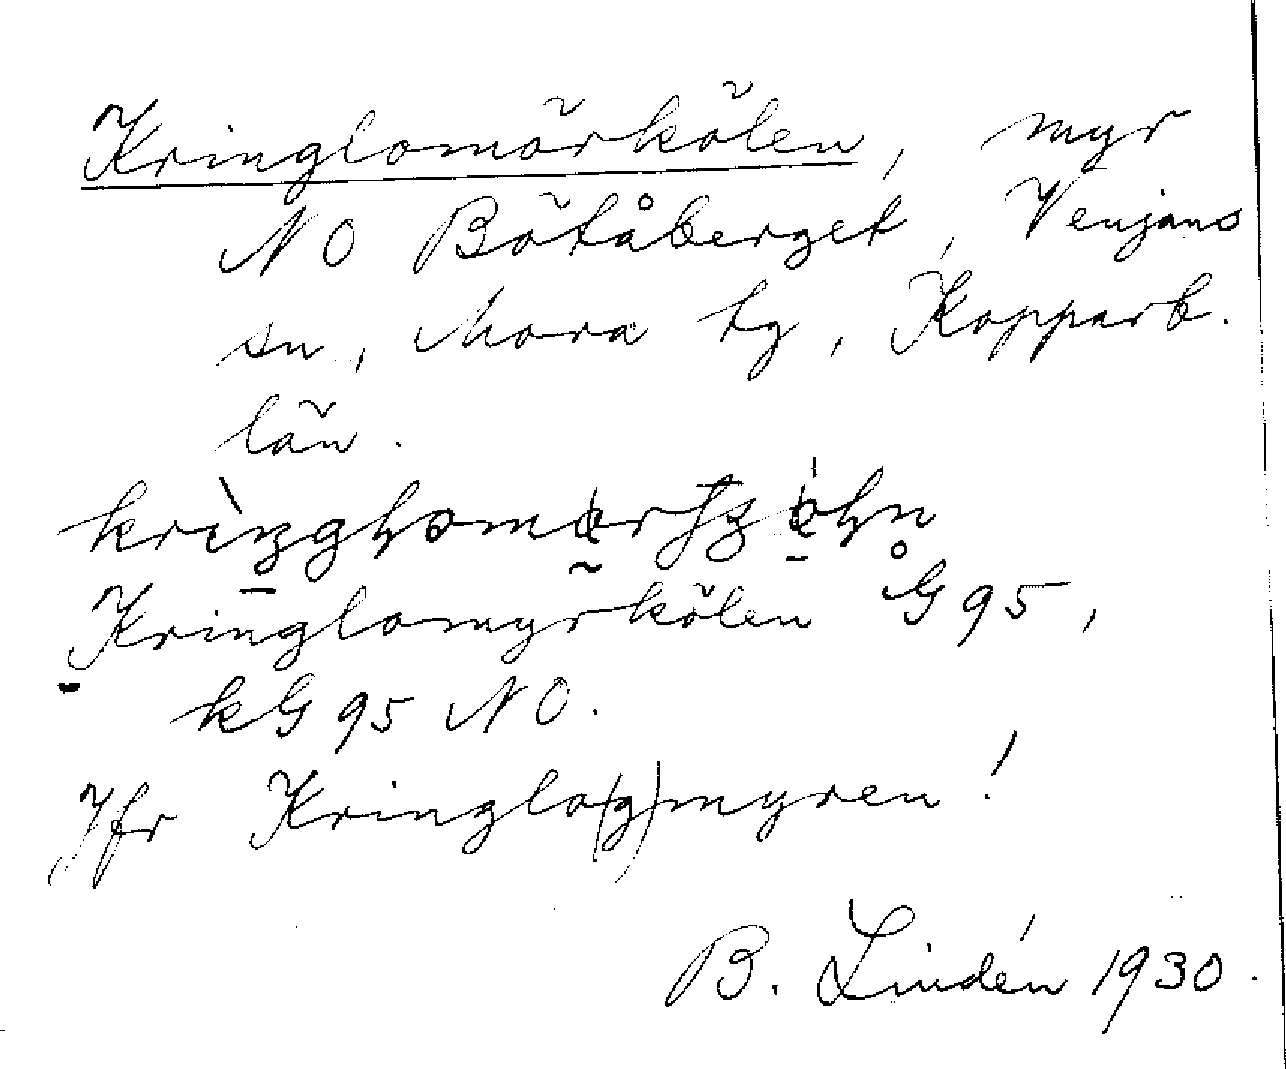 Kringlomörkölen, myr
NO Bötåberget, Venjans
sn, Mora tg, Kopparb.
län.
Kringlomyrkölen G95,
kG95 NO.
Jfr Kringlo(g)myren!
B. Lindén 1930.